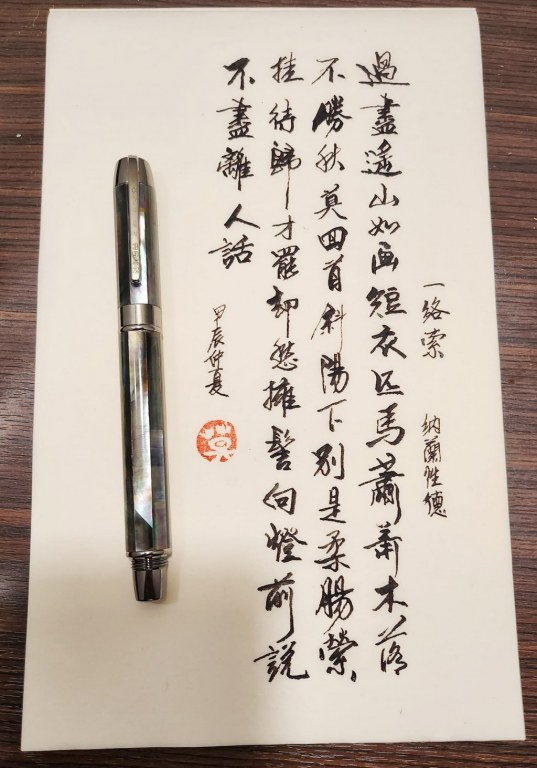 一络索 纳蘭性德
過盡遙山如画短衣匹馬蕭萧木落
不勝秋莫回首斜陽下別是柔腸縈
挂待歸才罷却愁擁髻向燈前說
不盡離人話
甲辰仲夏